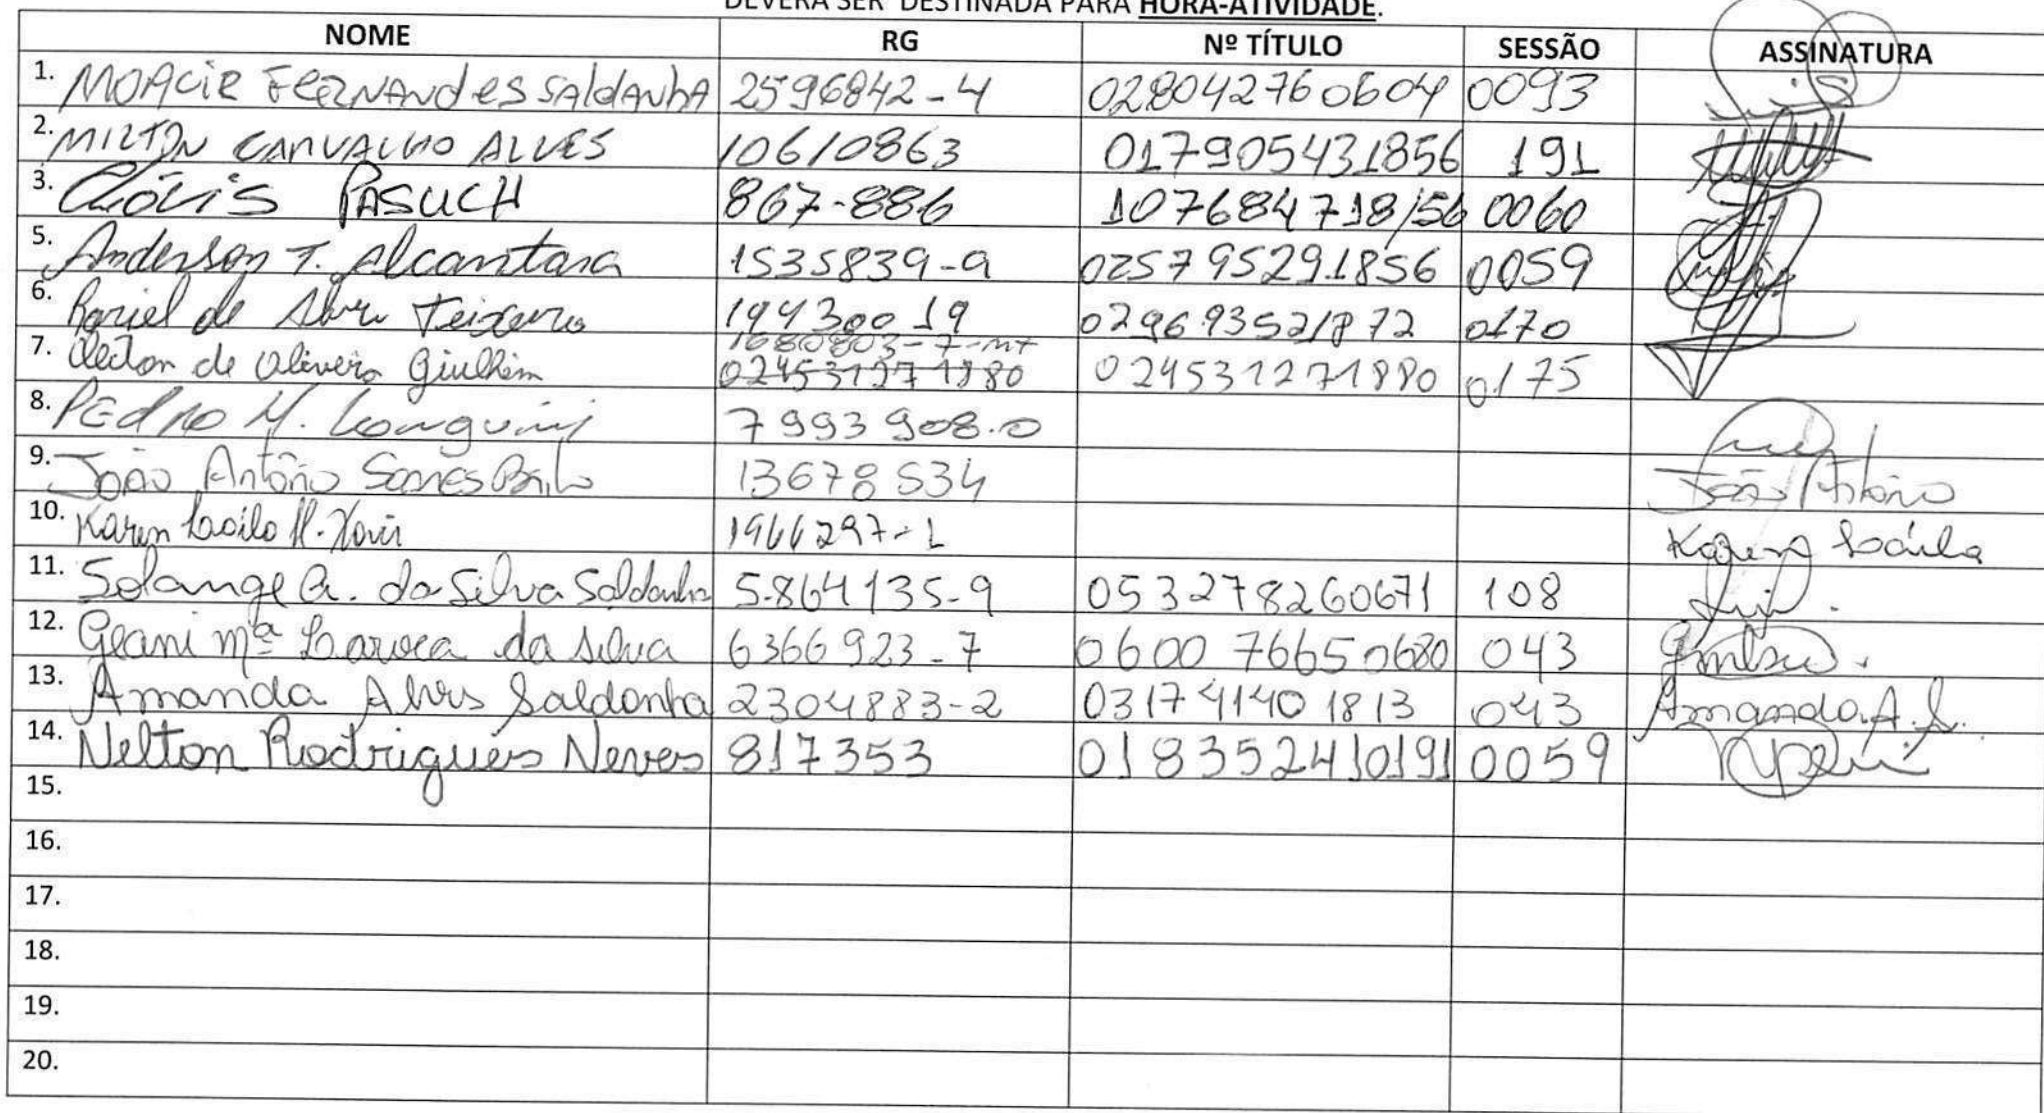 DEVERÁ SER DESTINADA PARA HORA-ATIVIDADE.
NOME RG Nº TÍTULO SESSÃO ASSINATURA
1. MOACIR FERNANdES SAldANhA 2596842-4 028042760604 0093
2. MILTON CARVALHO ALVES 10610863 017905431856 191
3. Clóvis PASUCH 867-886 107684718/56 0060
5. Anderson T. Alcantara 1535839-9 025795291856 0059
6. de Teixeira 19430019 029693521872 0170
7. de Oliveira 1680803-7-MT 024531271880 024531271880 0175
8. PEdRO M. Longuini 7993908.0
9. João Antônio Soares Brito 13678534 João Antônio
10. Karen 1966297-1 Karen
11. Solange A. da Silva Saldanha 5.864135-9 053278260671 108
12. Geani Mª Laroca da Silva 6366923-7 060076650680 043
13. Amanda Alves Saldanha 2304883-2 031741401813 043 Amanda A. S.
14. Nelton Rodrigues Neves 817353 018352410191 0059
15.
16.
17.
18.
19.
20.